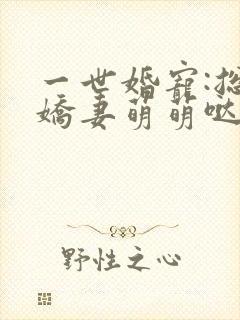 一世婚寵:總
嬌妻萌萌噠
野性之心